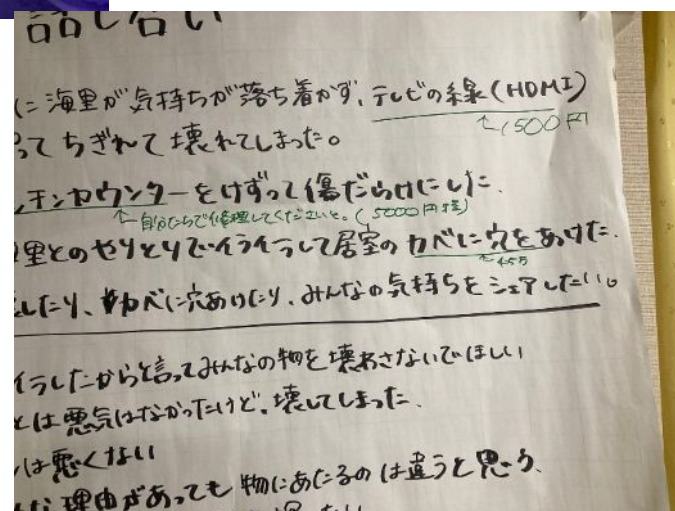 話し合い
に海里が気持ちが落ち着かず、テレビの線(HDMI)
←1500円
ってちぎれて壊れてしまった。
チンカウンターをけずって傷だらけにした.
←自分たちで修理してくださいと。(5000円程)
里とのやりとりでイライラして居室のカベに穴をあけた.
したり、カベに穴あけたり、みんなの気持ちをシェアしたい。
イラしたからと言ってみんなの物を壊わさないでほしい
とは悪気はなかったけど。壊してしまった.
は悪くない
な理由があっても物にあたるのは違うと思う.